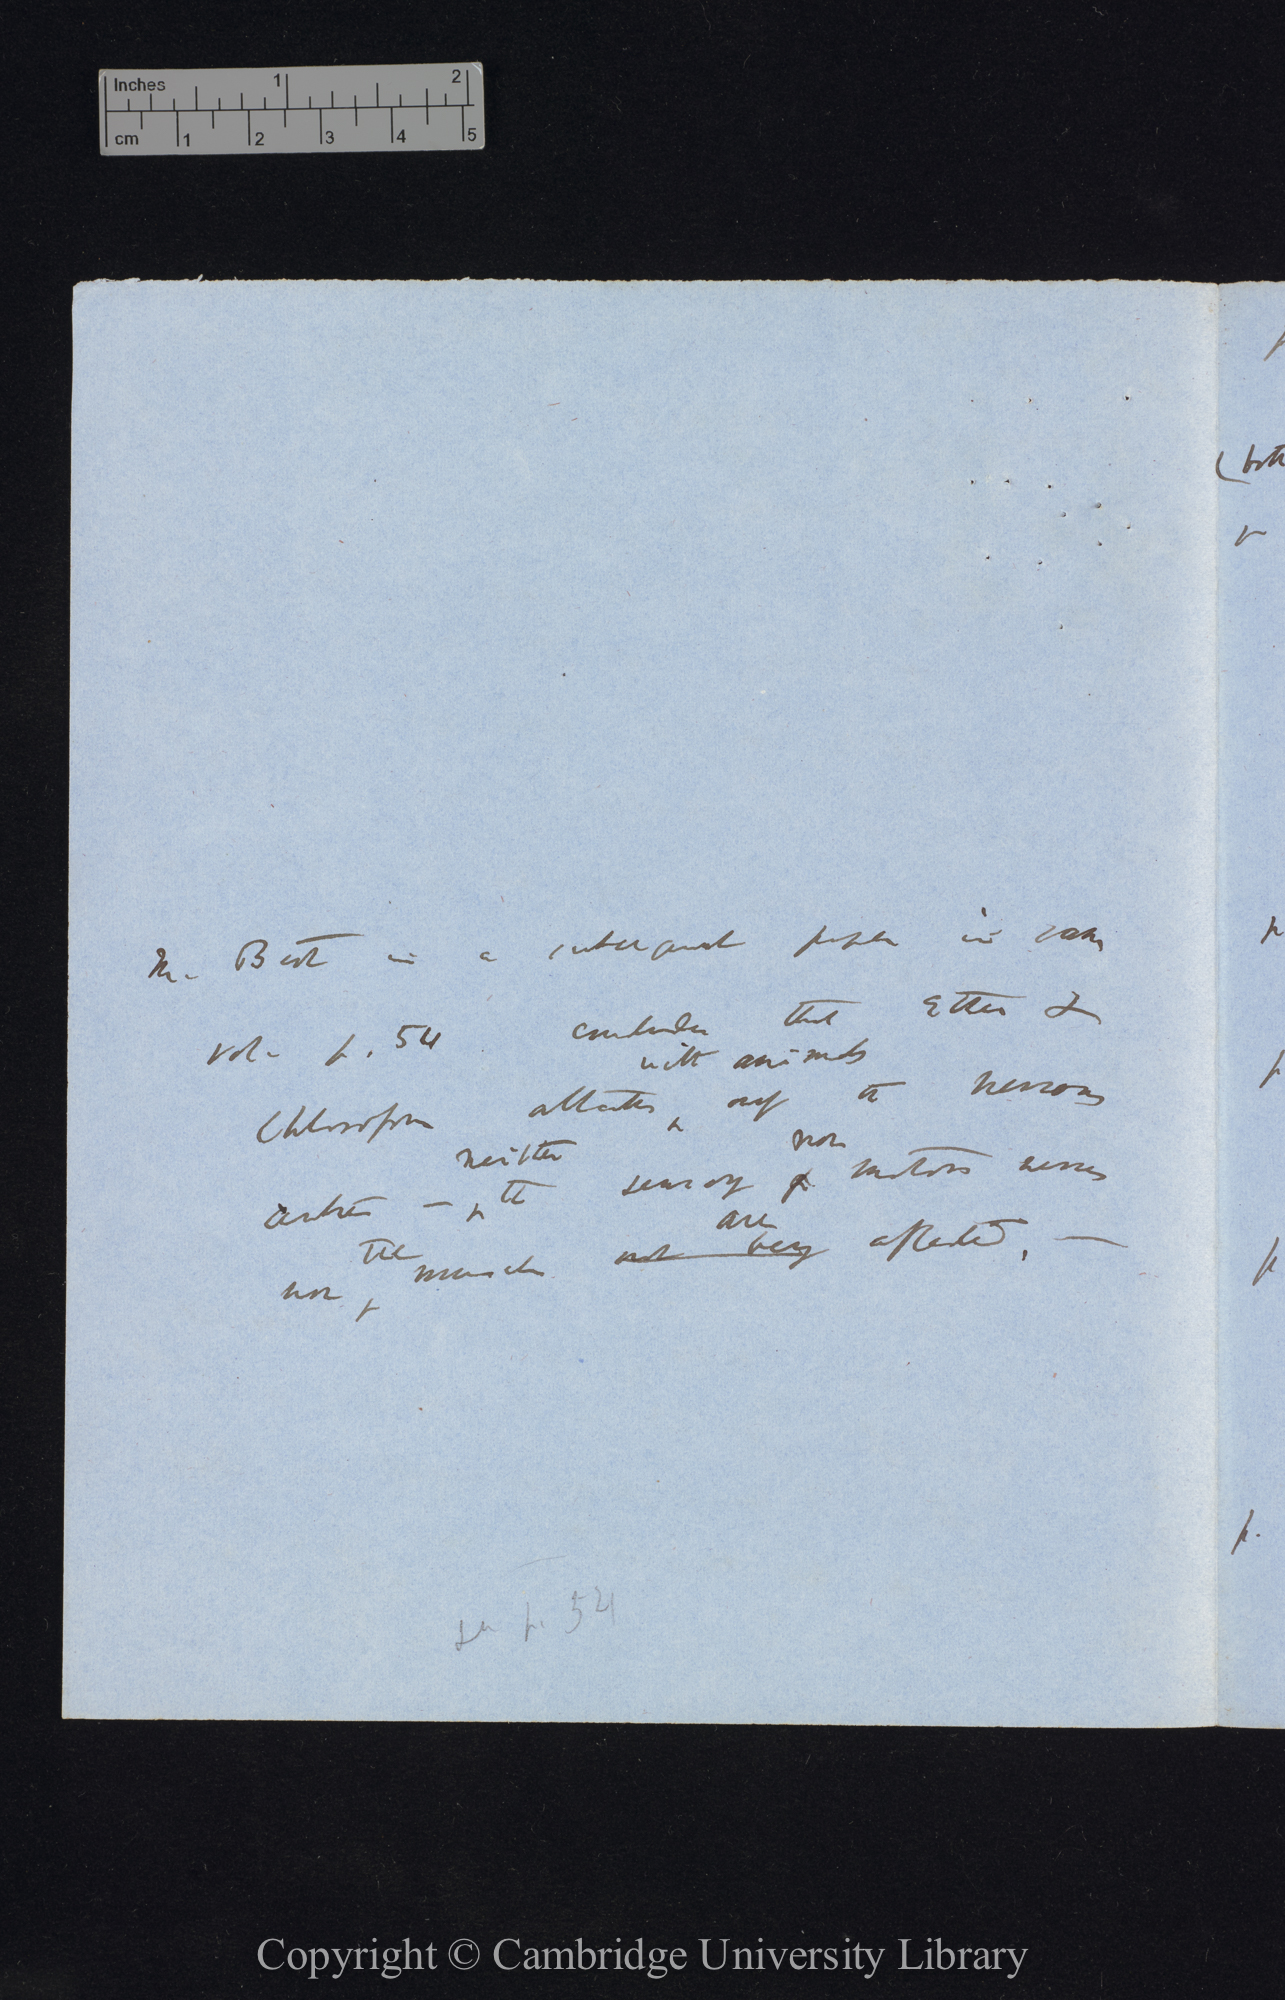 Inches 1 2
cm 1 2 3 4 5
M. Bert in a subsequent paper in same
vol. p. 54 concludes that Ether &
with animals
Chloroform attacks only the nervous
neither nor
centres — the sensory or motors nerves
the are
nor muscles not being affected, —
(both
p.
see p. 54
Copyright © Cambridge University Library